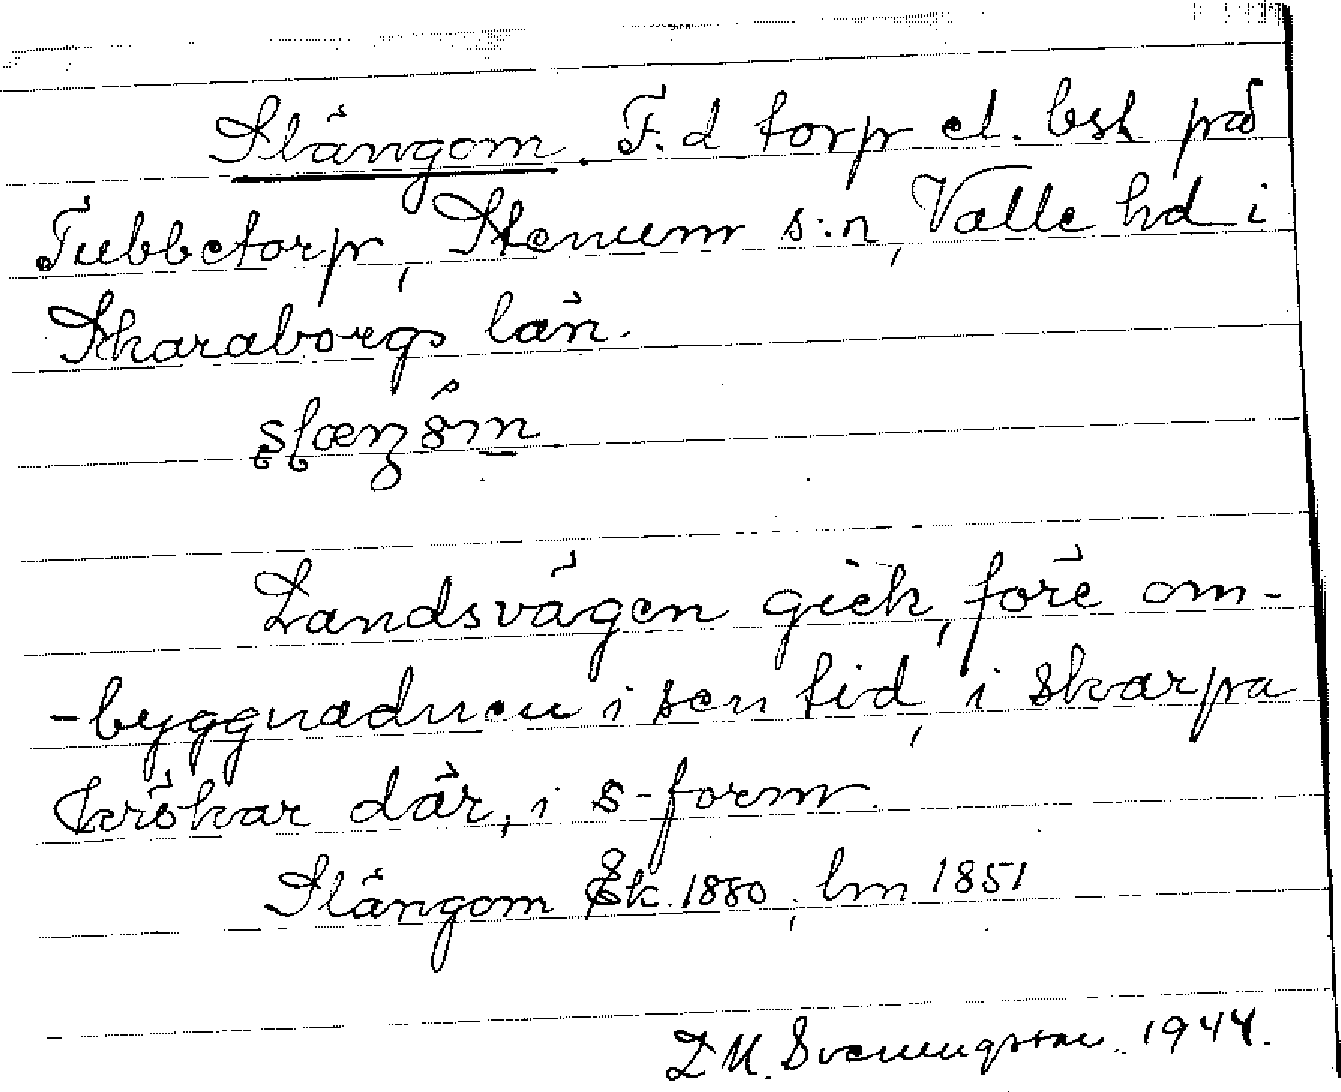 Slängom. F.d torp el. bst på
Tubbetorp, Stenum s:n, Valle hd i
Skaraborgs län.
Landsvägen gick, före om-
-byggnaden i sen tid, i skarpa
krökar där, i s-form.
Slängom Ek. 1880, lm 1851
D M. Svenungsson. 1944.